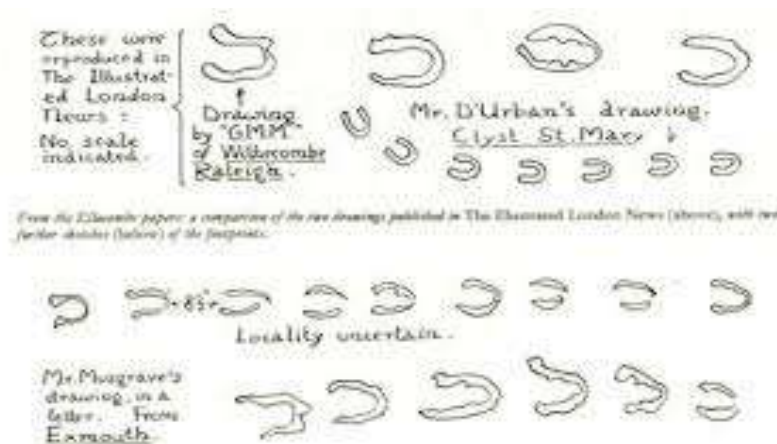 These were
reproduced in
The Illustrat-
ed London
News :
No scale
indicated.
Drawing
by "GMM"
of Withecombe
Raleigh.
Mr. D'Urban's drawing.
Clyst St. Mary
From the Ellacombe papers: a comparison of the two drawings published in The Illustrated London News (above), with two
further sketches (below) of the footprints.
8½"
Locality uncertain.
Mr. Musgrave's
drawing, in a
letter. From
Exmouth